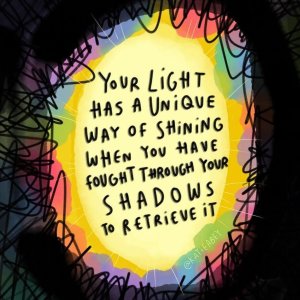 YOUR LIGHT
HAS A UNIQUE
WAY OF SHINING
WHEN YOU HAVE
FOUGHT THROUGH YOUR
SHADOWS
TO RETRIEVE IT